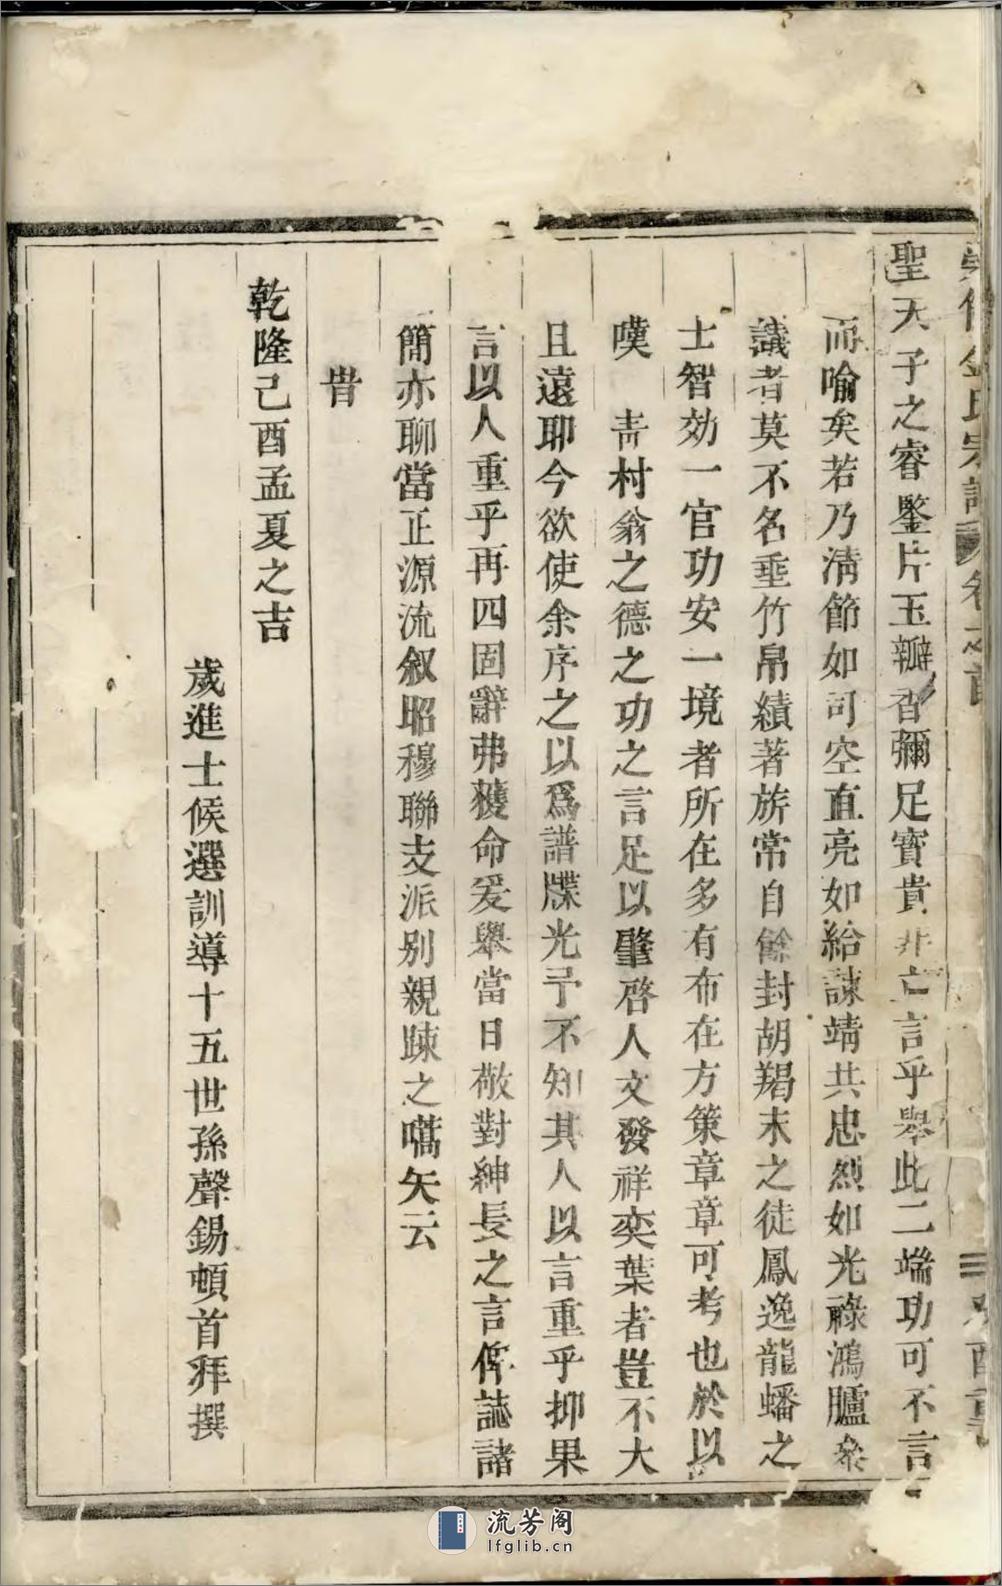 氏宗譜 卷之首
聖天子之睿鑒片玉瓣香彌足寶貴非亡言乎舉此二端功可不言
而喻矣若乃淸節如司空直亮如給諫靖共忠烈如光祿鴻臚
議者莫不名垂竹帛績著旂常自餘封胡羯末之徒鳳逸龍蟠之
士智効一官功安一境者所在多有布在方策章章可考也於以
嘆 靑村翁之德之功之言足以肇啓人文發祥奕葉者豈不大
且遠耶今欲使余序之以爲譜牒光予不知其人以言重乎抑果
言以人重乎再四固辭弗獲命爰舉當日敬對紳長之言俾誌諸
簡亦聊當正源流叙昭穆聯支派別親踈之嚆矢云
旹
乾隆己酉孟夏之吉
歲進士候選訓導十五世孫聲錫頓首拜撰
流芳阁
lfglib.cn